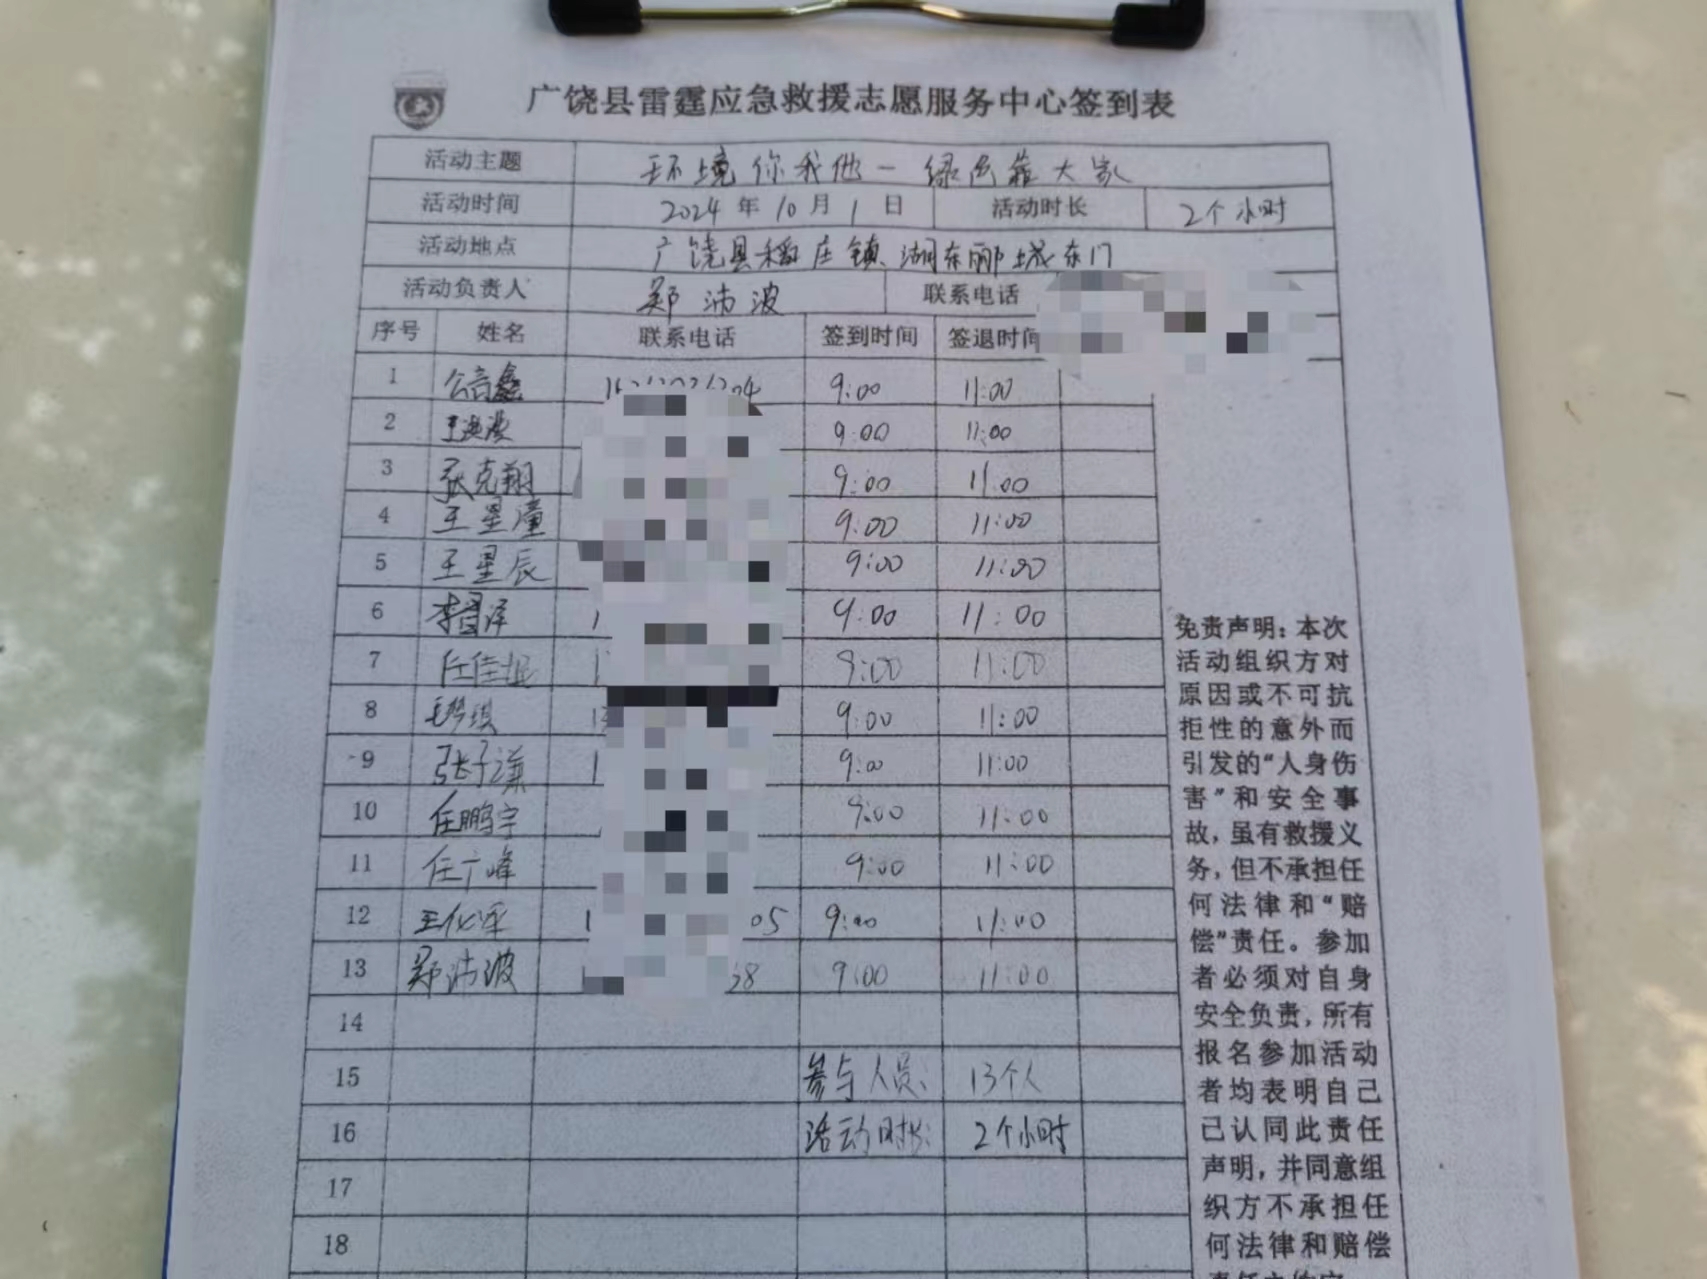 广饶县雷霆应急救援志愿服务中心签到表
活动主题 环境你我他一绿色靠大家
活动时间 2024年10月1日 活动时长 2个小时
活动地点 广饶县稻庄镇湖东郦城东门
活动负责人 郑沛波 联系电话
序号 姓名 联系电话 签到时间 签退时间
1 9:00 11:00
2 9:00 11:00
3 张克翔 9:00 11:00
4 王星潼 9:00 11:00
5 王星辰 9:00 11:00
6 9:00 11:00
7 9:00 11:00
8 9:00 11:00
9 张子谦 9:00 11:00
10 任鹏宇 9:00 11:00
11 任广峰 9:00 11:00
12 05 9:00 11:00
13 郑沛波 38 9:00 11:00
14
15 参与人员: 13个人
16 活动时长: 2个小时
17
18
免责声明:本次
活动组织方对
原因或不可抗
拒性的意外而
引发的“人身伤
害”和安全事
故,虽有救援义
务,但不承担任
何法律和“赔
偿”责任。参加
者必须对自身
安全负责,所有
报名参加活动
者均表明自己
已认同此责任
声明,并同意组
织方不承担任
何法律和赔偿